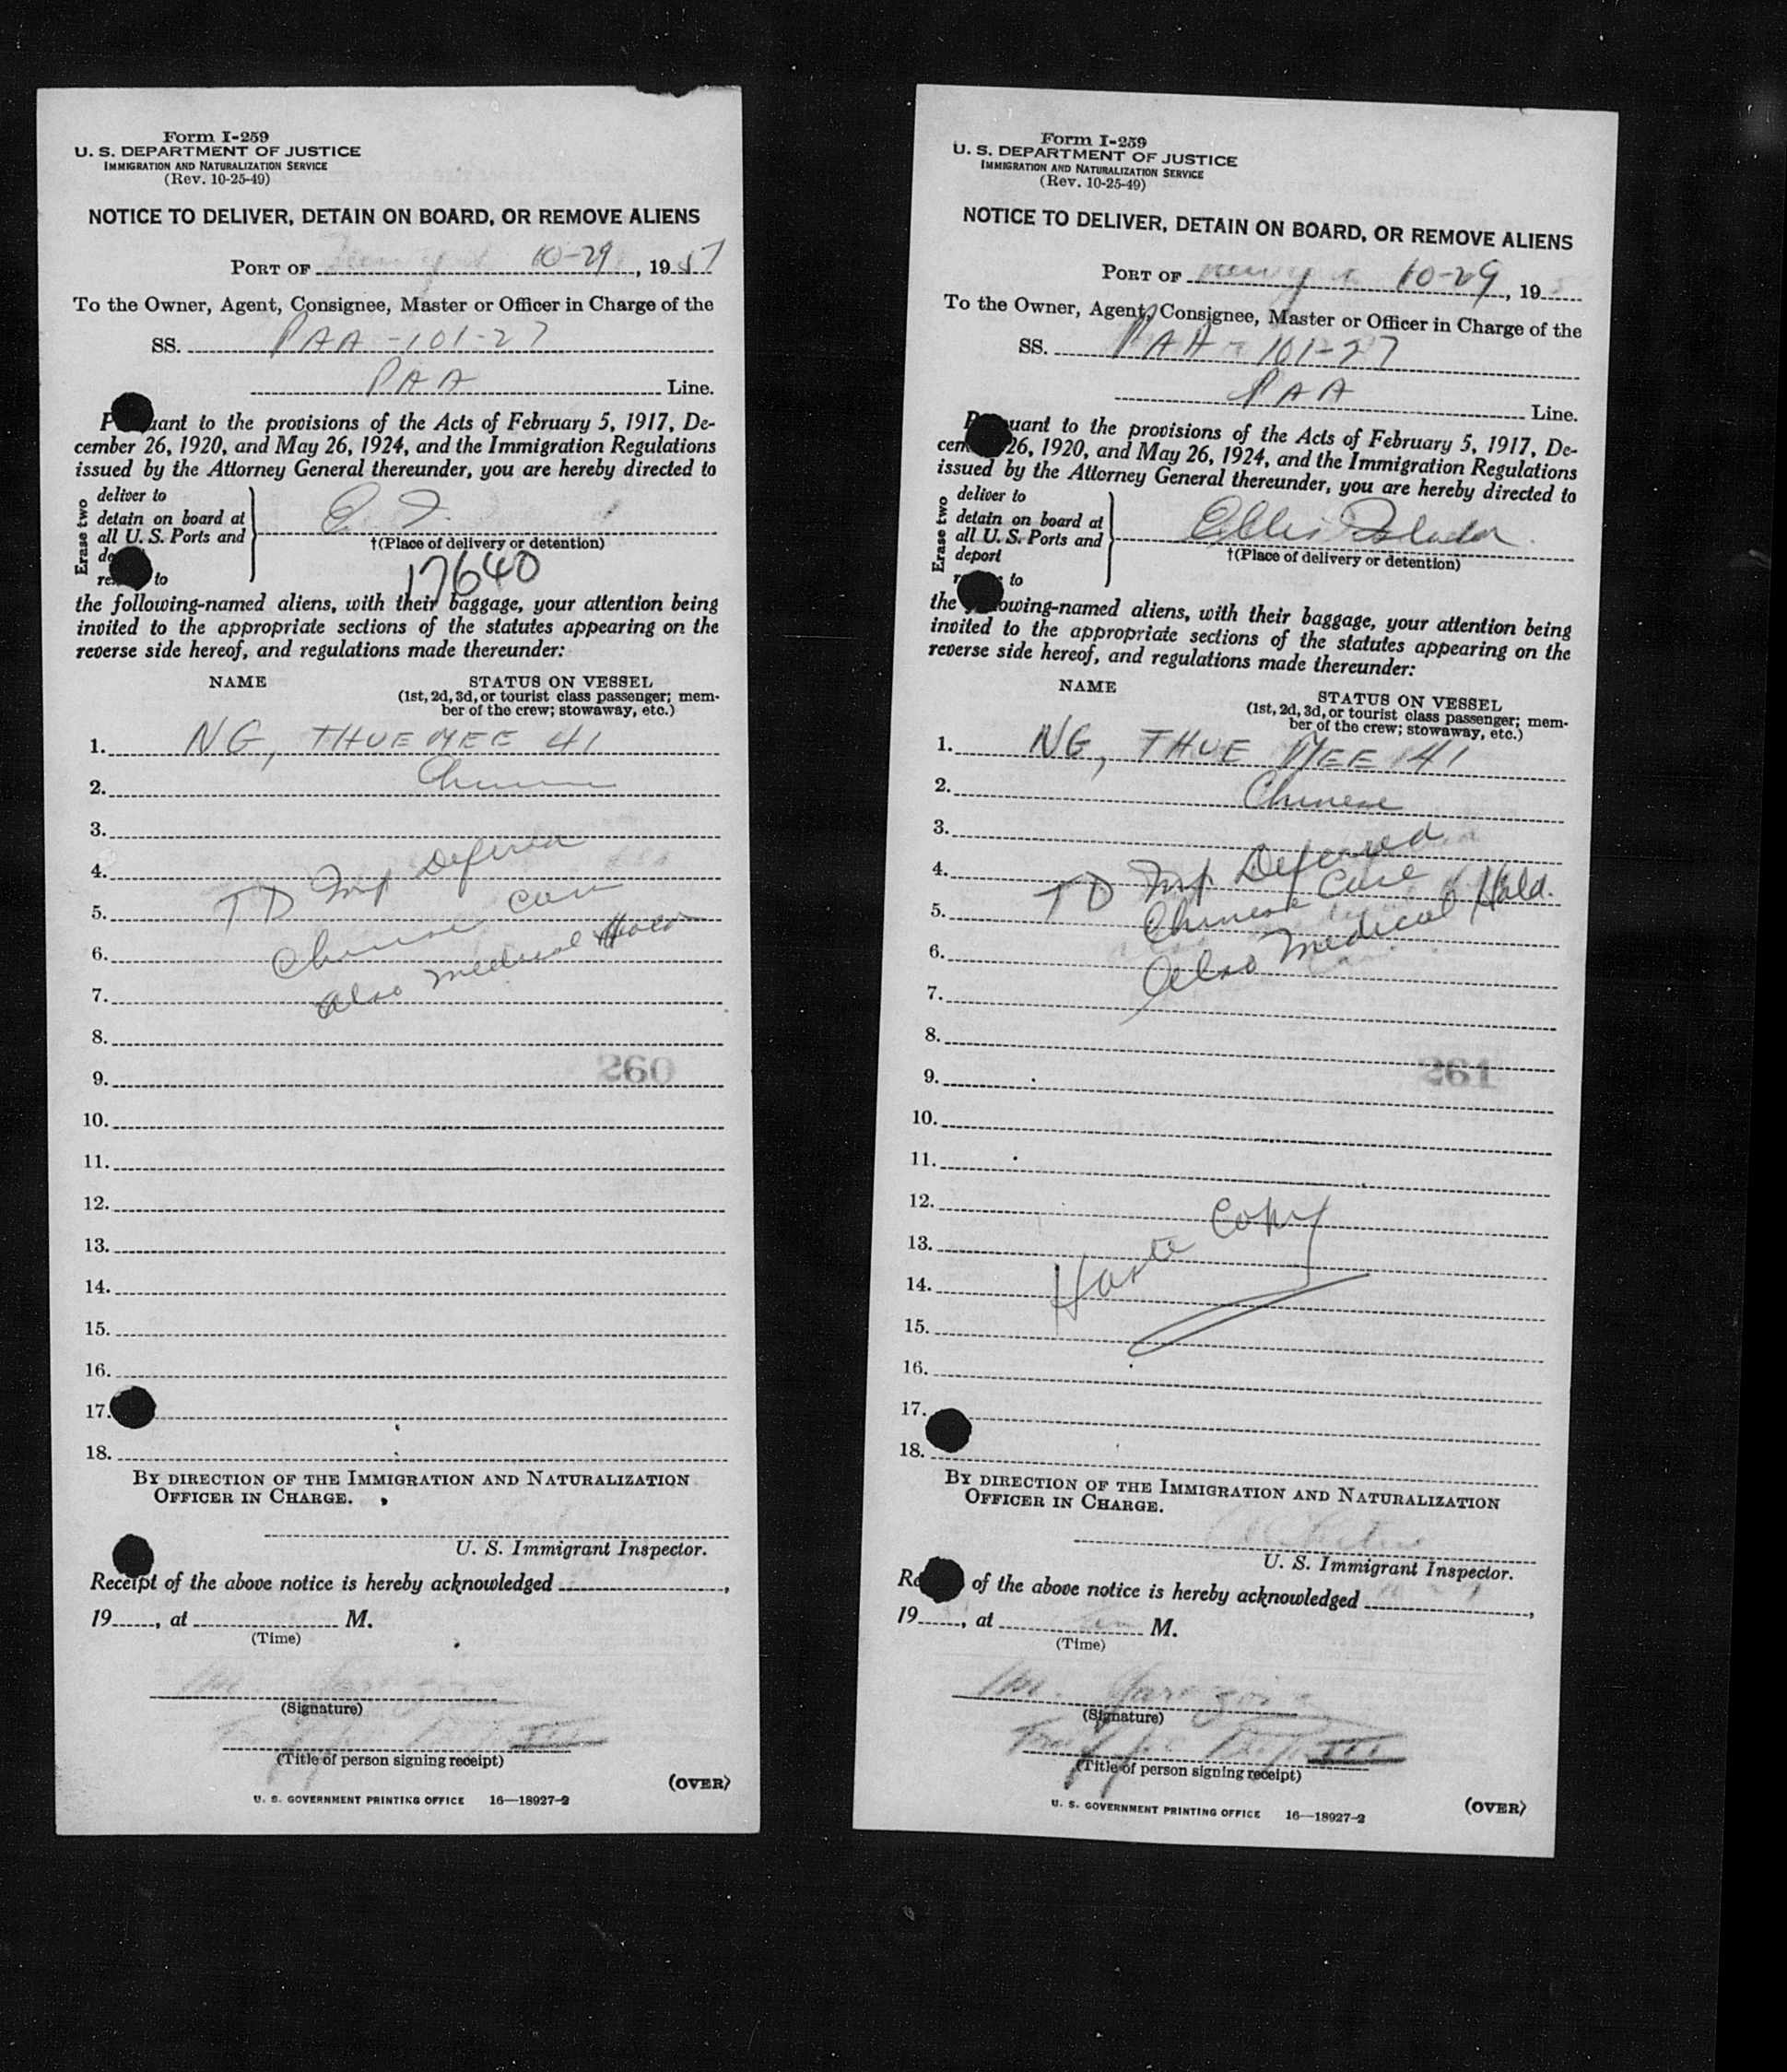 Form I-259
U. S. DEPARTMENT OF JUSTICE
IMMIGRATION AND NATURALIZATION SERVICE
(Rev. 10-25-49)
NOTICE TO DELIVER, DETAIN ON BOARD, OR REMOVE ALIENS
PORT OF 10-29, 19
To the Owner, Agent, Consignee, Master or Officer in Charge of the
SS. PAA-101-27
PAA Line.
Pursuant to the provisions of the Acts of February 5, 1917, De-
cember 26, 1920, and May 26, 1924, and the Immigration Regulations
issued by the Attorney General thereunder, you are hereby directed to
Erase two
deliver to
detain on board at
all U. S. Ports and
de
re to
E. I.
†(Place of delivery or detention)
17640
the following-named aliens, with their baggage, your attention being
invited to the appropriate sections of the statutes appearing on the
reverse side hereof, and regulations made thereunder:
NAME STATUS ON VESSEL
(1st, 2d, 3d, or tourist class passenger; mem-
ber of the crew; stowaway, etc.)
1. NG, THUE MEE 41
2. Chinese
3.
4. TD Insp Deferred
5. Chinese Case
6. Also Medical Hold
7.
8.
9. 260
10.
11.
12.
13.
14.
15.
16.
17.
18.
BY DIRECTION OF THE IMMIGRATION AND NATURALIZATION
OFFICER IN CHARGE.
U. S. Immigrant Inspector.
Receipt of the above notice is hereby acknowledged ,
19 , at M.
(Time)
(Signature)
(Title of person signing receipt)
(OVER)
U. S. GOVERNMENT PRINTING OFFICE 16—18927-2
Form I-259
U. S. DEPARTMENT OF JUSTICE
IMMIGRATION AND NATURALIZATION SERVICE
(Rev. 10-25-49)
NOTICE TO DELIVER, DETAIN ON BOARD, OR REMOVE ALIENS
PORT OF 10-29, 19
To the Owner, Agent, Consignee, Master or Officer in Charge of the
SS. PAA-101-27
PAA Line.
Pursuant to the provisions of the Acts of February 5, 1917, De-
cem 26, 1920, and May 26, 1924, and the Immigration Regulations
issued by the Attorney General thereunder, you are hereby directed to
Erase two
deliver to
detain on board at
all U. S. Ports and
deport
r to
Ellis Island
†(Place of delivery or detention)
the following-named aliens, with their baggage, your attention being
invited to the appropriate sections of the statutes appearing on the
reverse side hereof, and regulations made thereunder:
NAME STATUS ON VESSEL
(1st, 2d, 3d, or tourist class passenger; mem-
ber of the crew; stowaway, etc.)
1. NG, THUE MEE 41
2. Chinese
3.
4. TD Insp Deferred
5. Chinese Case
6. Also Medical Hold.
7.
8.
9. 261
10.
11.
12. Copy
13.
14.
15.
16.
17.
18.
BY DIRECTION OF THE IMMIGRATION AND NATURALIZATION
OFFICER IN CHARGE.
U. S. Immigrant Inspector.
Re of the above notice is hereby acknowledged ,
19 , at M.
(Time)
(Signature)
(Title of person signing receipt)
(OVER)
U. S. GOVERNMENT PRINTING OFFICE 16—18927-2